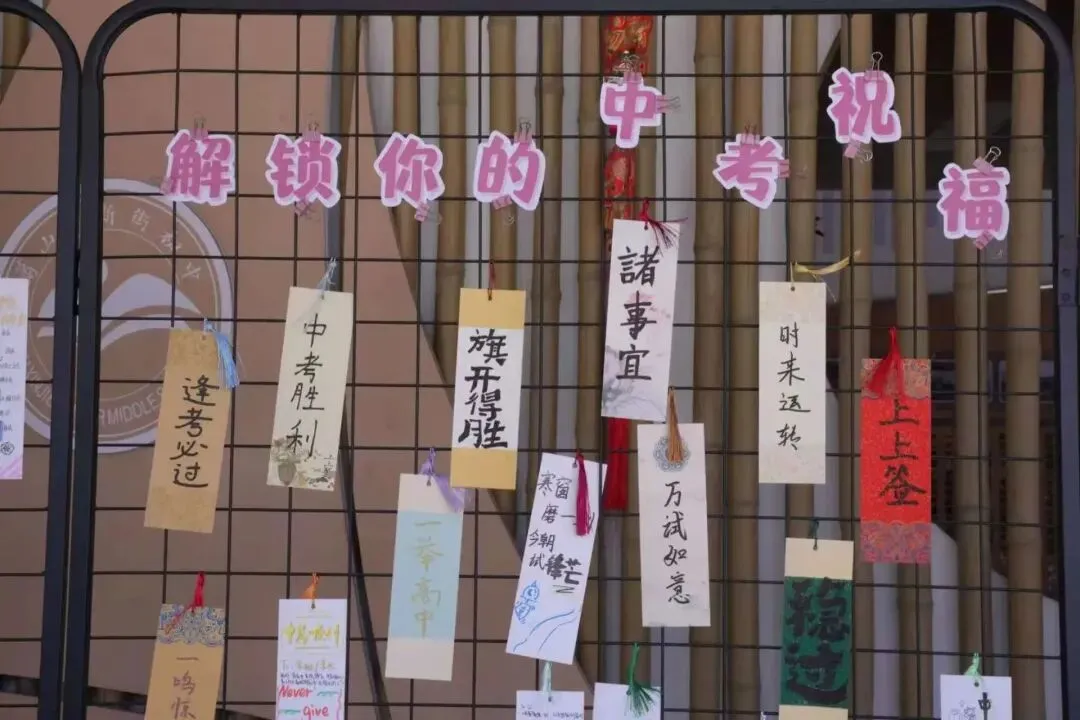 解锁你的中考祝福
逢考必过
中考胜利
旗开得胜
諸事宜
时来运转
上上签
一举高中
寒窗
磨一
今朝
试锋芒
万试如意
稳过
一鸣惊
Never
give
中
MIDDLE